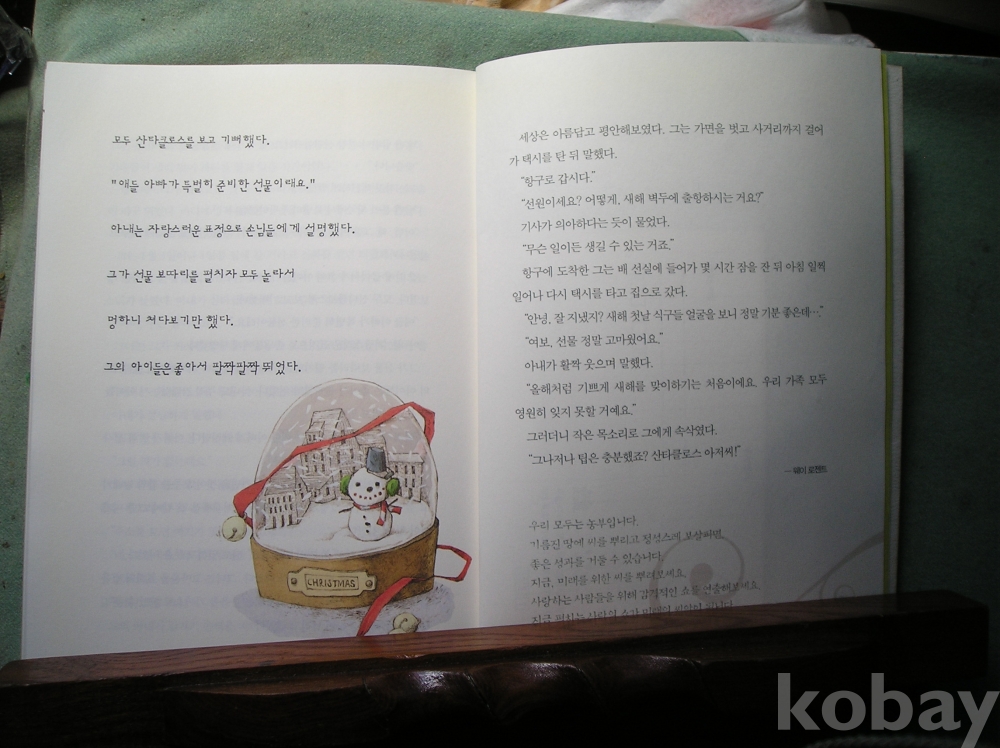 모두 산타클로스를 보고 기뻐했다.
"애들 아빠가 특별히 준비한 선물이래요."
아내는 자랑스러운 표정으로 손님들에게 설명했다.
그가 선물 보따리를 펼치자 모두 놀라서
멍하니 쳐다보기만 했다.
그의 아이들은 좋아서 팔짝팔짝 뛰었다.
CHRISTMAS
세상은 아름답고 평안해보였다. 그는 가면을 벗고 사거리까지 걸어
가 택시를 탄 뒤 말했다.
“항구로 갑시다.”
“선원이세요? 어떻게, 새해 벽두에 출항하시는 거요?”
기사가 의아하다는 듯이 물었다.
“무슨 일이든 생길 수 있는 거죠.”
항구에 도착한 그는 배 선실에 들어가 몇 시간 잠을 잔 뒤 아침 일찍
일어나 다시 택시를 타고 집으로 갔다.
“안녕, 잘 지냈지? 새해 첫날 식구들 얼굴을 보니 정말 기분 좋은데….”
“여보, 선물 정말 고마웠어요.”
아내가 활짝 웃으며 말했다.
“올해처럼 기쁘게 새해를 맞이하기는 처음이에요. 우리 가족 모두
영원히 잊지 못할 거예요.”
그러더니 작은 목소리로 그에게 속삭였다.
“그나저나 팁은 충분했죠? 산타클로스 아저씨!”
— 웨이 로젠트
우리 모두는 농부입니다.
기름진 땅에 씨를 뿌리고 정성스레 보살피면
좋은 성과를 거둘 수 있습니다.
지금, 미래를 위한 씨를 뿌려보세요.
사랑하는 사람들을 위해 감동적인 쇼를 연출해보세요.
지금 펼치는 사랑의
kobay